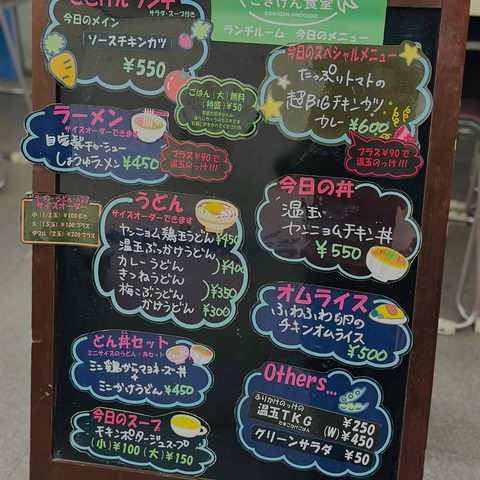 ごきげんランチ
サラダ・スープ付き
今日のメイン
ソースチキンカツ
¥550
ごきげん食堂
GOKIGEN SHOKUDO
ランチルーム 今日のメニュー
ごはん(大)無料
(特盛)¥50
今日のスペシャルメニュー
たっぷりトマトの
超BIGチキンカツ
カレー ¥600
プラス¥90で
温玉のっけ!!!
ラーメン
サイズオーダーできます
自家製チャーシュー
しょうゆラーメン ¥450
プラス¥90で
温玉のっけ!!!
ラーメン・うどん・パスタ
サイズオーダー
小(1/2玉)¥100引き
大(1.5玉)¥100プラス
ダブル(2玉)¥200プラス
うどん
サイズオーダーできます
ヤンニョム鶏玉うどん ¥450
温玉ぶっかけうどん
カレーうどん
¥400
きつねうどん
梅こぶうどん
¥350
かけうどん ¥300
今日の丼
温玉
ヤンニョムチキン丼
¥550
オムライス
ふわふわ卵の
チキンオムライス
¥500
どん丼セット
ミニサイズのうどん・丼セット
ミニ鶏からマヨネーズ丼
+
ミニかけうどん ¥450
今日のスープ
チキンポタージュスープ
(小)¥100(大)¥150
Others...
ふりかけのっけの
温玉TKG ¥250
たまごかけごはん
(W)¥450
グリーンサラダ ¥50